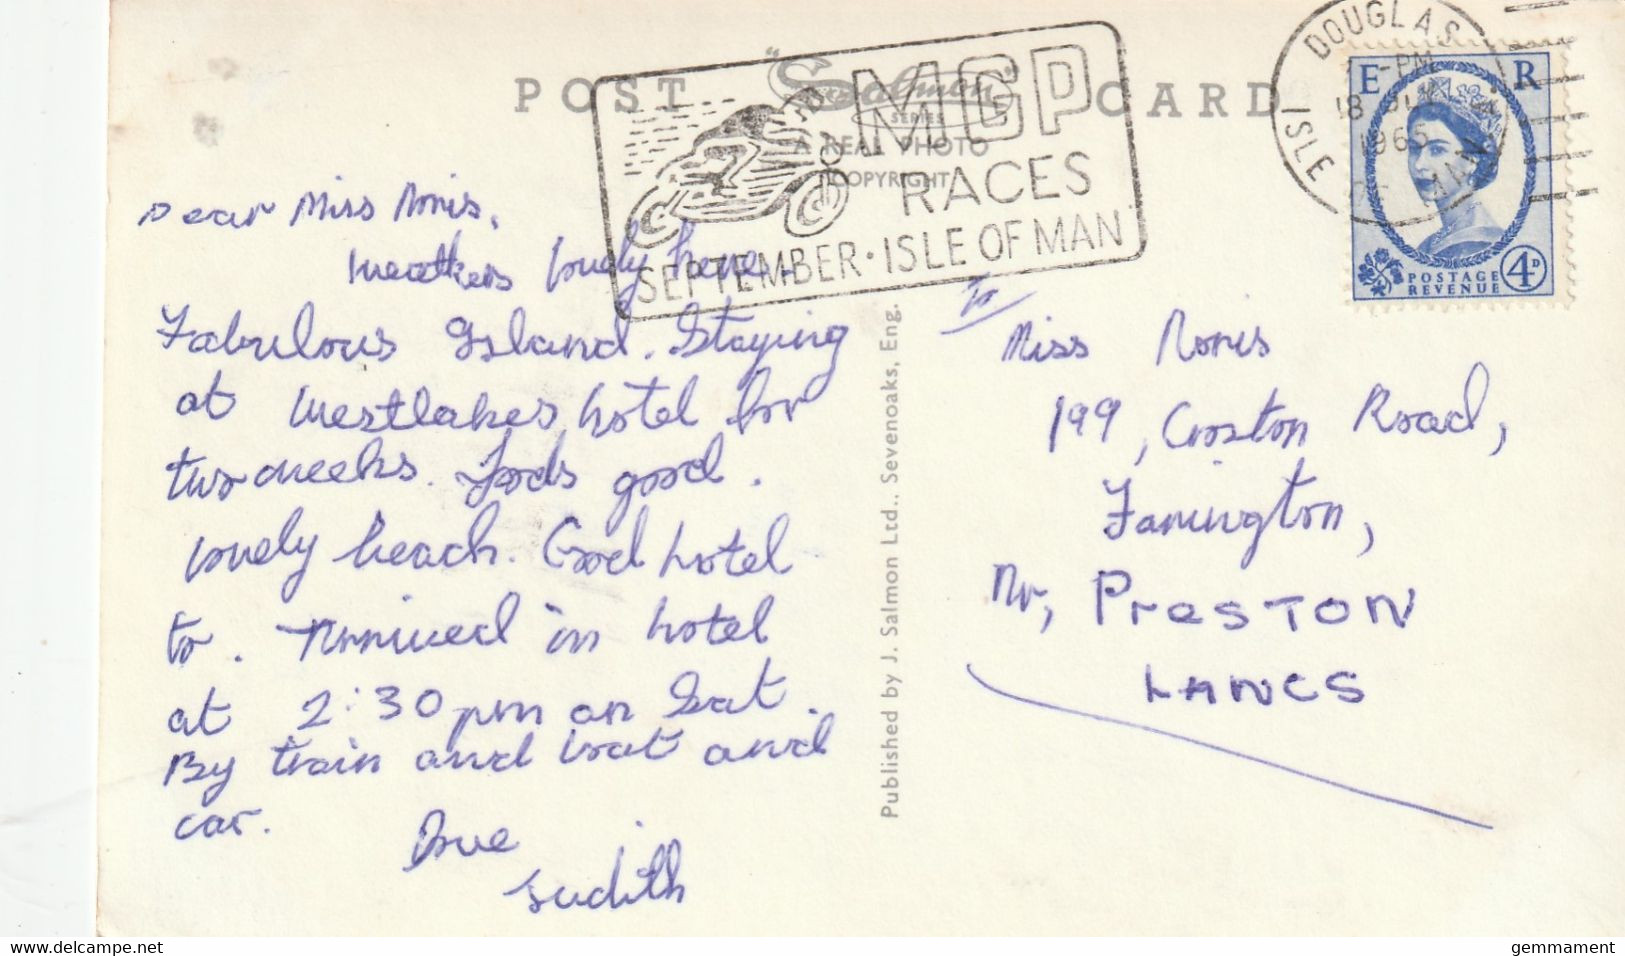 POST CARD
"Salmon
SERIES
A REAL PHOTO
COPYRIGHT
MGP
RACES
SEPTEMBER · ISLE OF MAN
DOUGLAS
-PM
18
1965
ISLE OF MAN
E R
POSTAGE
REVENUE
4D
Dear Miss Norris,
Weathers lovely here.
Fabulous Island. Staying
at Westlakes hotel for
two weeks. Foods good.
lovely beach. Good hotel
to. Arrived in hotel
at 2:30pm on Sat.
By train and boat and
car.
Love
Judith
Published by J. Salmon Ltd., Sevenoaks, Eng.
To
Miss Norris
199, Croston Road,
Farrington,
Nr, PresTON
LANCS
www.delcampe.net
gemmament